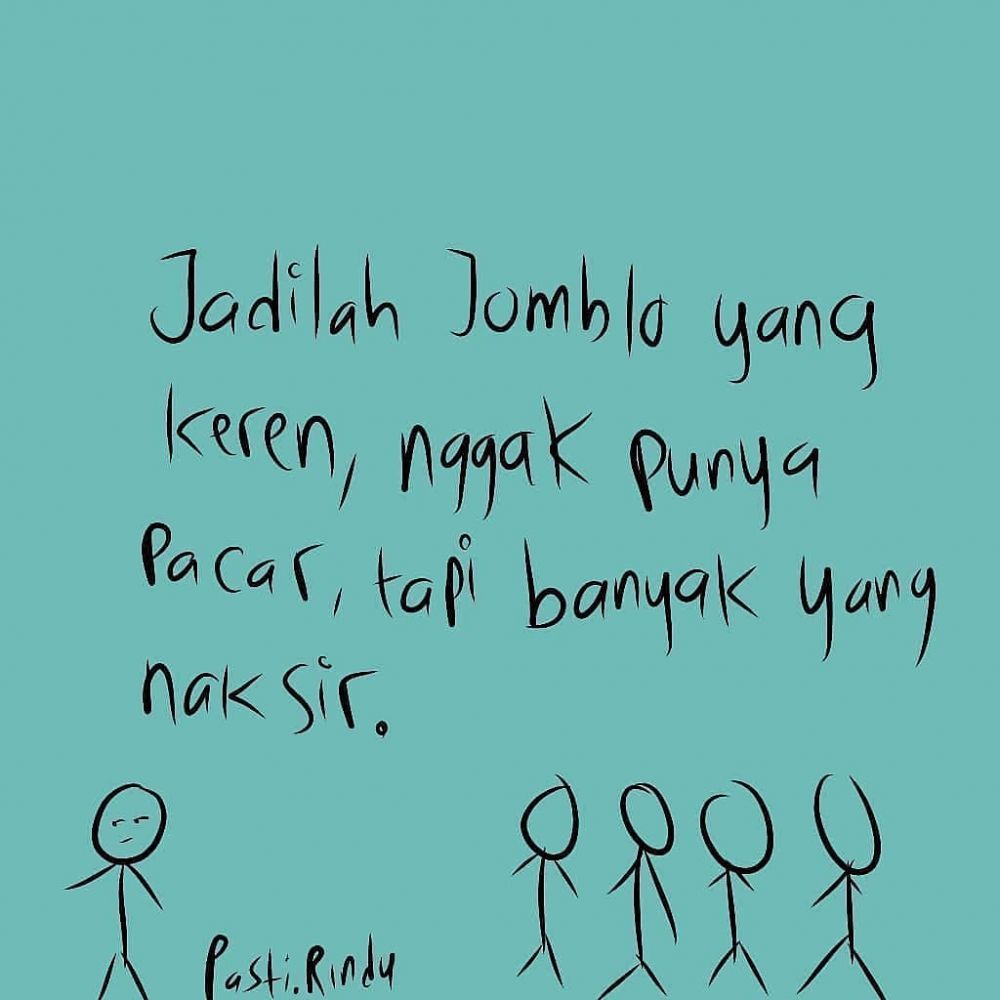 Jadilah Jomblo yang
keren, nggak punya
Pacar, tapi banyak yang
naksir.
Pasti.Rindu